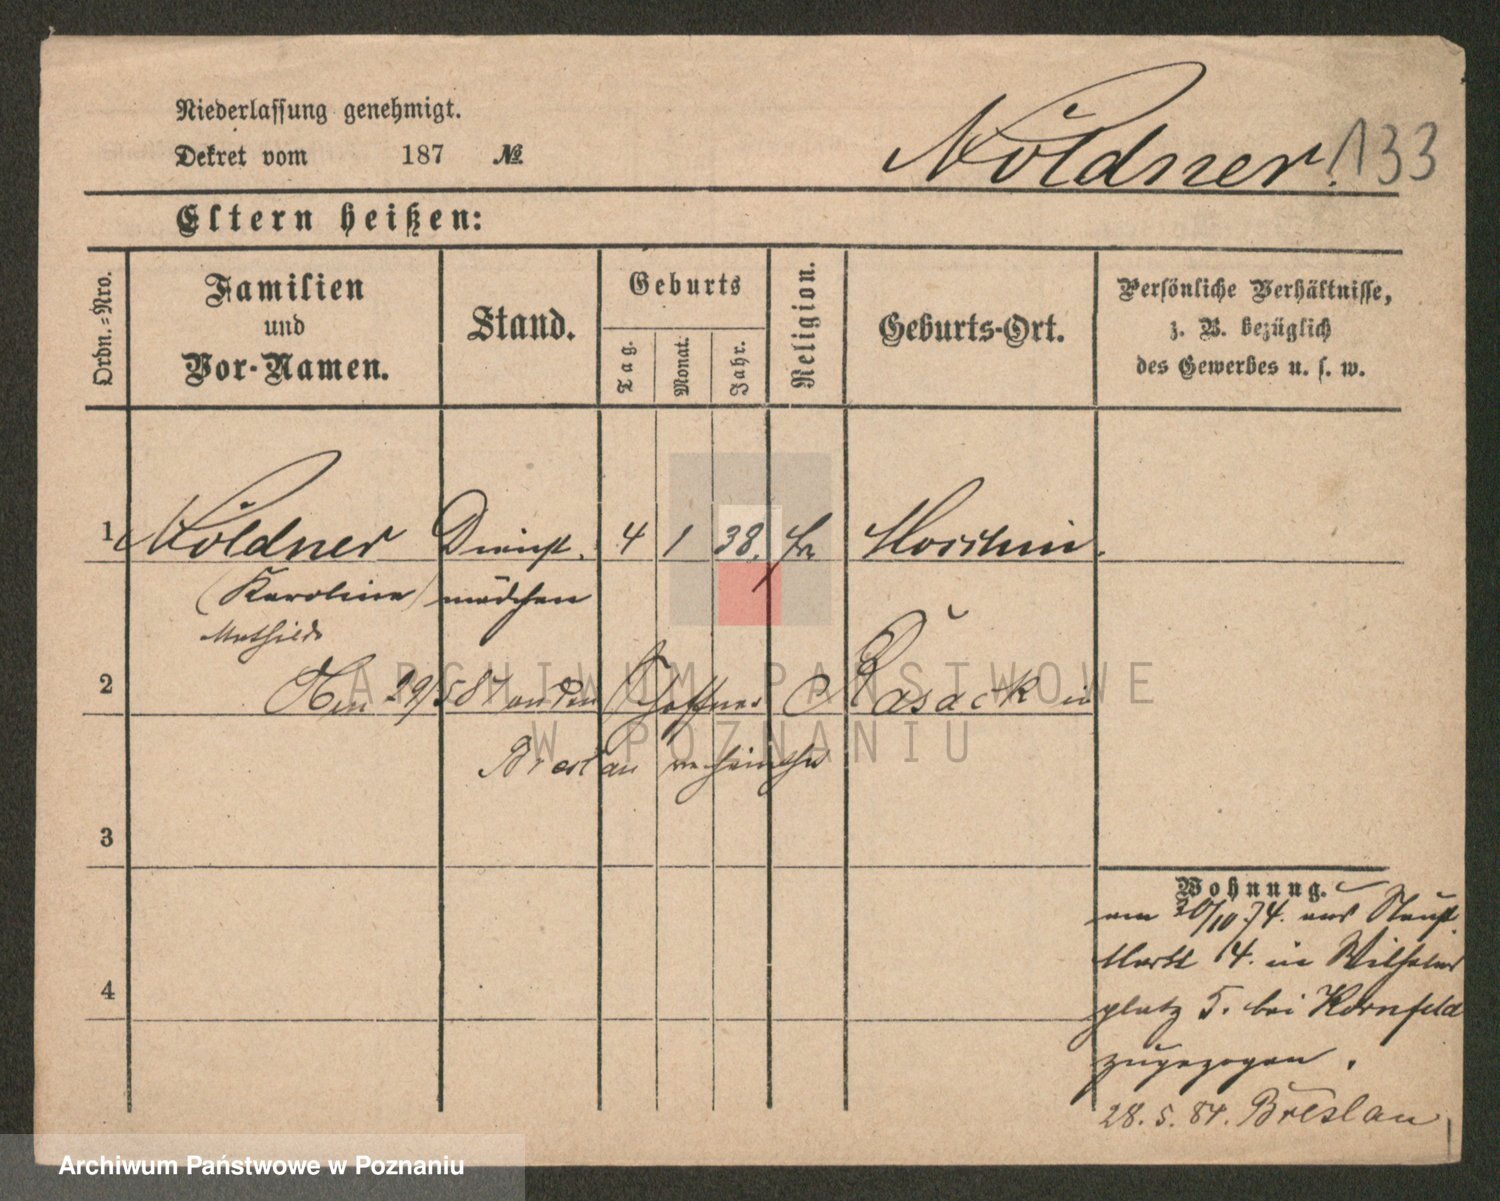 Niederlassung genehmigt.
Dekret vom 187 №
Nöldner. 133
Eltern heißen:
Ordn.-Nro.
Familien und Vor-Namen.
Stand.
Geburts
Tag. Monat. Jahr.
Religion.
Geburts-Ort.
Persönliche Verhältnisse,
z. B. bezüglich
des Gewerbes u. s. w.
1 Nöldner Dienst. 4 1 38.
(Karoline) mädchen
Mathilde
2 29/5 87 an den Rasack in
Breslau
3
4
Wohnung.
am 30/10 74. aus
Markt 4. in Wilhelms
platz 5. bei Kornfeld
zugezogen.
28. 5. 84. Breslau
ARCHIWUM PAŃSTWOWE
W POZNANIU
Archiwum Państwowe w Poznaniu